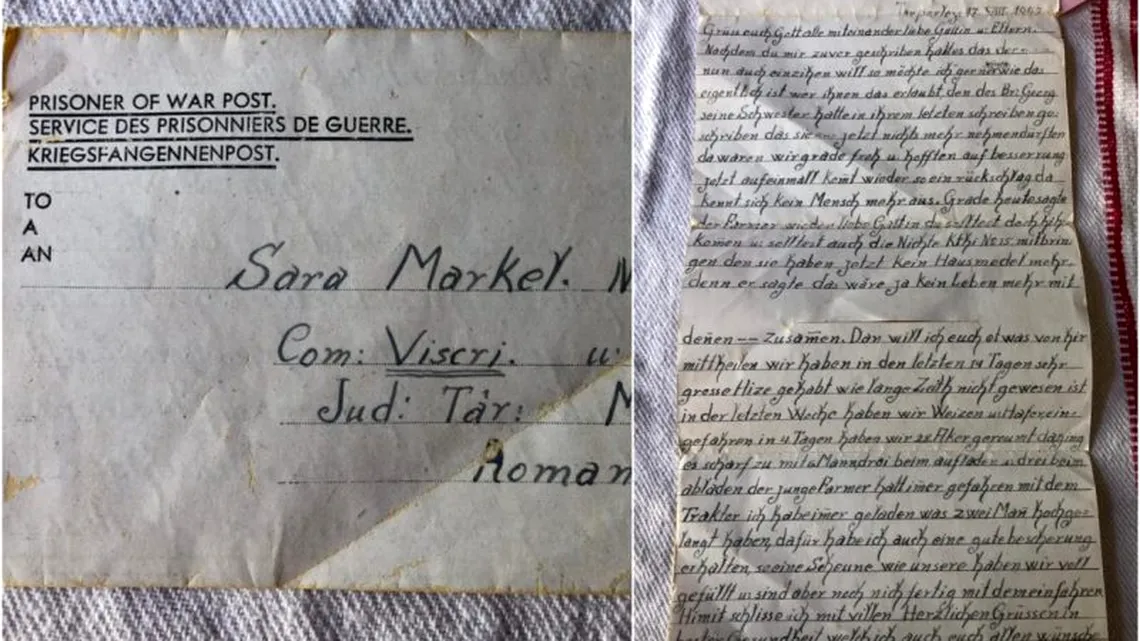 PRISONER OF WAR POST.
SERVICE DES PRISONNIERS DE GUERRE.
KRIEGSFANGENNENPOST.
TO
A
AN
Sara Markel. M
Com: Viscri. u:
Jud: Târ: M
Roman
17. VIII. 1947
Grüss euch Gott alle miteinander liebe Gattin u: Eltern.
Nachdem du mir zuvor geschriben hattes das der
nun auch einzihen will so möchte ich gerne wie das
eigentlich ist wer ihnen das erlaubt, den des Br: Georg
seine Schwester hatte in ihrem letzten schreiben ge:
schrieben das sie jetzt nichts mehr nehmen dürften
da waren wir grade froh u: hofften auf besserung
jetzt aufeinmall komt wieder so ein rückschlag da
kennt sich kein Mensch mehr aus. Grade heute sagte
der Farmer wieder liebe Gattin du solltest doch hih
komen u: solltest auch die Nichte Kthi No 15 mitbrin:
gen den sie haben jetzt kein Hausmedel mehr.
denn er sagte das wäre ja kein Leben mehr mit
denen -- Zusamen. Dan will ich euch etwas von hir
mittheilen wir haben in den letzten 14 Tagen sehr
grosse Hize gehabt wie lange Zaith nicht gewesen ist
in der letzten Woche haben wir Weizen u: Hafer ein:
gefahren in 4 Tagen haben wir 28 Aker gereumt da ging
es scharf zu mit 6 Mann drei beim aufladen u: drei beim
abladen der junge Farmer hatt imer gefahren mit dem
Trakter ich habe imer geladen was zwei Man hochge:
langt haben, dafür habe ich auch eine gute bescherung
erhalten, so eine Scheune wie unsere haben wir voll
gefüllt u: sind aber noch nich fertig mit dem einfahren
Himit schlisse ich mit villen Herzlichen Grüssen in
bester Gesundheit welch ich auch euch allen wünsche